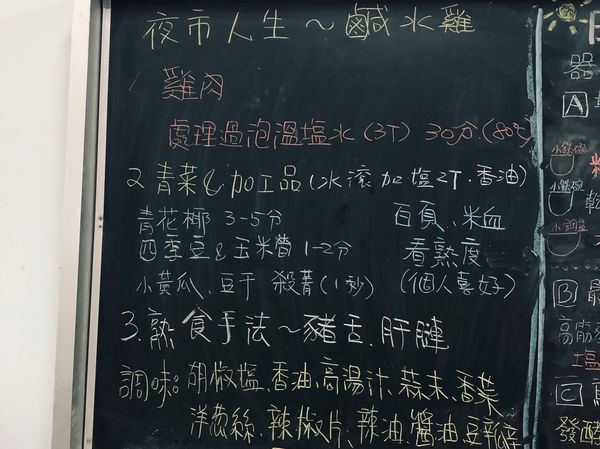 夜市人生～鹹水雞
1 雞肉
處理過泡溫塩水(3T) 30分(80℃)
2 青菜&加工品(水滾加塩2T、香油)
青花椰 3-5分 百頁、米血
四季豆&玉米筍 1-2分 看熟度
小黃瓜、豆干 殺菁(1秒) (個人喜好)
3. 熟食手法～豬舌、肝膶
調味: 胡椒塩、香油、高湯汁、蒜末、香菜
洋蔥絲、辣椒片、辣油、醬油、豆瓣
器
A
小鉄碗
小鉄碗
小鋼盆
B 最
高筋
塩
C
發酵